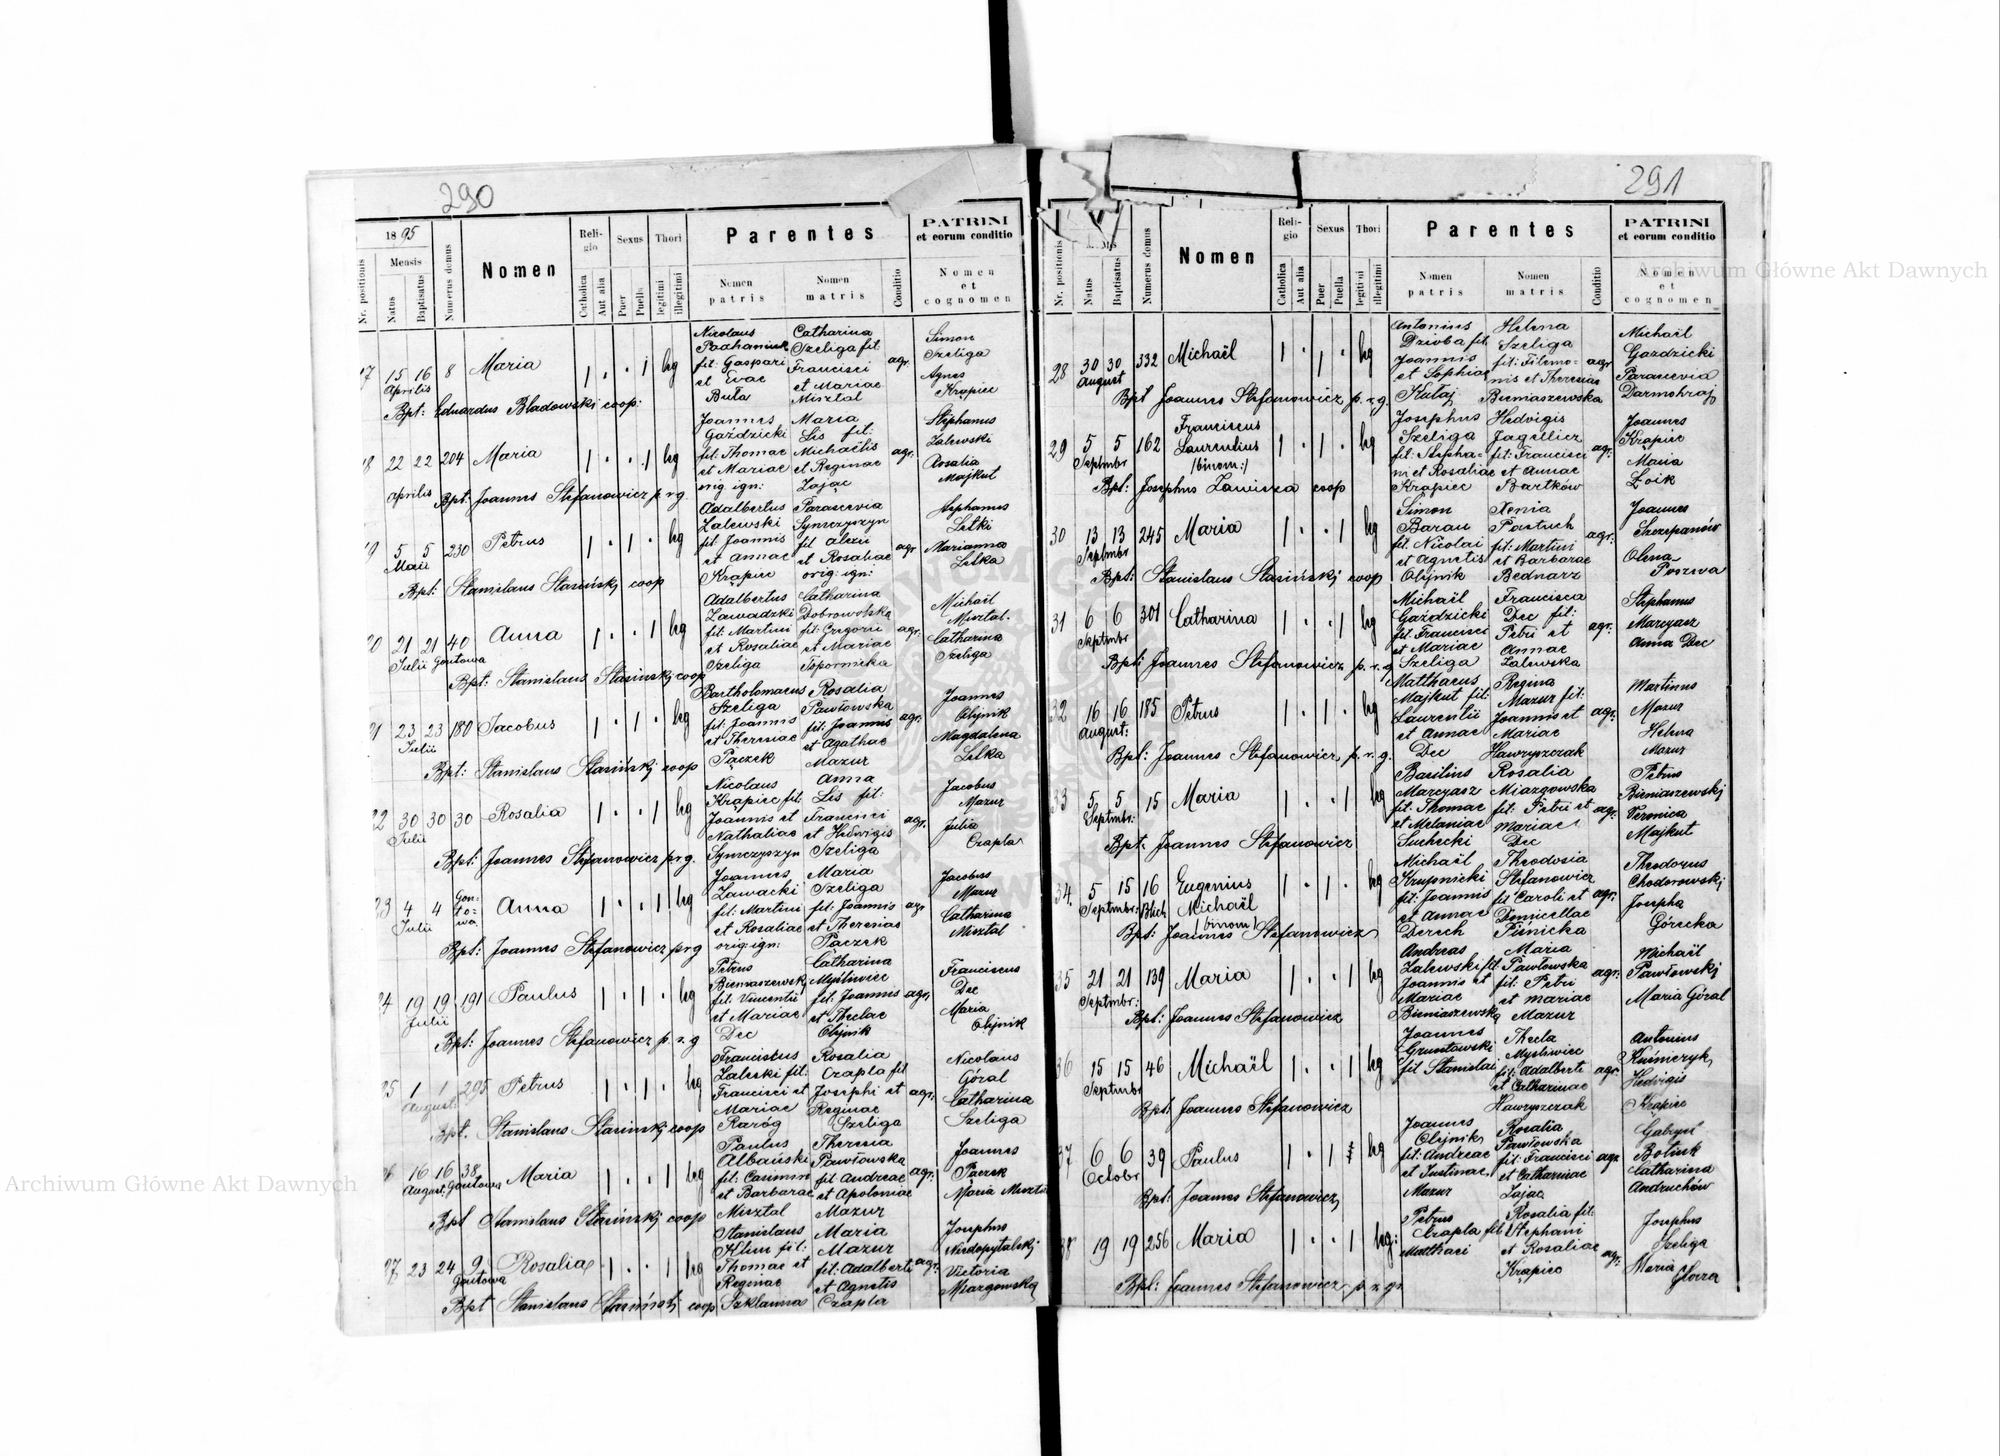 290
1895
Mensis
Nr. positionis
Natus
Baptisatus
Numerus domus
Nomen
Religio
Catholica
Aut alia
Sexus
Puer
Puella
Thori
legitimi
illegitimi
Parentes
Nomen patris
Nomen matris
Conditio
PATRINI
et eorum conditio
Nomen
et
cognomen
15 16 8 Maria leg Nicolaus fit: Gaspari et Evae Buta Catharina Szeliga fil Francisci et Mariae Misztal agr. Simon Szeliga Agnes Krąpiec
Aprilis
Bpt: Eduardus Bladowski coop:
22 22 204 Maria leg Joannes Gaździcki fil: Thomae et Mariae orig. ign: Maria Lis fil: Michaëlis et Reginae Zając agr. Stephanus Zalewski Rosalia Majkut
Aprilis
Bpt: Joannes Stefanowicz p. r. g.
5 5 230 Petrus leg Adalbertus Zalewski fil: Joannis et Annae Krąpiec Parascevia Symczyszyn fil Alexii et Rosaliae orig: ign: agr Stephanus Letki Marianna Letka
Maii
Bpt: Stanislaus Stasiński coop
21 21 40 Anna leg Adalbertus Zawadzki fil: Martini et Rosaliae Szeliga Catharina Dobrowolska fil: Gregorii et Mariae Topornicka agr. Michaël Misztal Catharina Szeliga
Julii Gontowa
Bpt: Stanislaus Stasinski coop
23 23 180 Jacobus leg Bartholomaeus Szeliga fil: Joannis et Theresiae Pączek Rosalia Pawłowska fil: Joannis et Agathae Mazur agr. Joannes Olijnik Magdalena Letka
Julii
Bpt: Stanislaus Stasiński coop
22 30 30 30 Rosalia leg Nicolaus Krąpiec fil: Joannis et Nathaliae Symczyszyn Anna Lis fil: Francisci et Hedwigis Szeliga agr. Jacobus Mazur Julia Czapla
Julii
Bpt: Joannes Stefanowicz p r g.
23 4 4 Gontowa Anna leg Joannes Zawacki fil: Martini et Rosaliae orig: ign: Maria Szeliga fil: Joannis et Theresiae Pączek agr Jacobus Mazur Catharina Misztal
Julii
Bpt: Joannes Stefanowicz p r g
24 19 19 191 Paulus leg Petrus fil: Vincentii et Mariae Dec Catharina Myśliwiec fil: Joannis et Theclae Olijnik agr. Franciscus Dec Maria Olijnik
Julii
Bpt: Joannes Stefanowicz p. r. g
25 1 1 295 Petrus leg Franciscus Zaleski fil: Francisci et Mariae Raróg Rosalia Czapla fil Josephi et Reginae Szeliga agr. Nicolaus Góral Catharina Szeliga
August:
Bpt. Stanislaus Stasinski coop
16 16 38 Maria leg Paulus Albański fil: et Barbarae Misztal Theresia Pawłowska fil Andreae et Apoloniae Mazur agr: Joannes Pączek Maria
August. Gontowa
Bpt Stanislaus Stasiński coop
27 23 24 9 Rosalia leg Stanislaus Klim fil: Thomae et Reginae Szklanna Maria Mazur fil: Adalberti et Agnetis Czapla agr. Josephus Niedopytalski Victoria Miazgowska
Gontowa
Bpt Stanislaus Stasiński coop
291
Nr. positionis
Natus
Baptisatus
Numerus domus
Nomen
Religio
Catholica
Aut alia
Sexus
Puer
Puella
Thori
legitimi
illegitimi
Parentes
Nomen patris
Nomen matris
Conditio
PATRINI
et eorum conditio
Nomen
et
cognomen
28 30 30 332 Michaël leg Antonius Dzioba fil Joannis et Sophiae Kutaj Helena Szeliga fil: Filemonis et Theresiae Bieniaszewska agr Michaël Gazdzicki Parascevia Darmohraj
August
Bpt Joannes Stefanowicz p. r. g
29 5 5 162 Franciscus Laurentius /binom:/ leg Josephus Szeliga fil: Stephani et Rosaliae Krąpiec Hedvigis Jagillicz fil: Francisci et Annae Bartków agr: Joannes Krąpiec Maria Łoik
Septmbr
Bpt: Josephus Zawisza coop
30 13 13 245 Maria leg Simon Baran fil. Nicolai et Agnetis Olijnik Xenia Pastuch fil: Martini et Barbarae Bednarz agr: Joannes Szczepanów Olena Poszwa
Septmbr
Bpt: Stanislaus Stasiński coop
31 6 6 301 Catharina leg Michaël Gaździcki fil: Francisci et Mariae Szeliga Francisca Dec fil: Petri et Annae Zalewska agr: Stephanus Marcyasz Anna Dec
Septmbr
Bpt: Joannes Stefanowicz p. r. g
32 16 16 185 Petrus leg Matthaeus Majkut fil: Laurentii et Annae Dec Regina Mazur fil: Joannis et Mariae Hawryszczak agr: Martinus Mazur Helena Mazur
August:
Bpt: Joannes Stefanowicz p. r. g.
33 5 5 15 Maria leg Basilius Marcyasz fil: Thomae et Melaniae Suchecki Rosalia Miazgowska fil: Petri et Mariae Dec agr: Petrus Bieniaszewski Veronica Majkut
Septmbr:
Bpt. Joannes Stefanowicz
34. 5 15 16 Eugenius Michaël /binom/ leg Michaël Krupnicki fil: Joannis et Annae Derech Theodosia Stefanowicz fil Caroli et Domicellae agr: Theodorus Chodorowski Josepha Górecka
Septmbr:
Bpt: Joannes Stefanowicz
35 21 21 139 Maria leg Andreas Zalewski fil Joannis et Mariae Bieniaszewska Maria Pawłowska fil: Petri et Mariae Mazur agr: Michaël Pawłowski Maria Góral
Septmbr:
Bpt: Joannes Stefanowicz
36 15 15 46 Michaël leg Joannes Gruntowski fil Stanislai Thecla Myśliwiec fil: Adalberti et Catharinae Hawryszczak agr Antonius Kuśmczyk Hedvigis Krąpiec
Septmbr
Bpt: Joannes Stefanowicz
37 6 6 39 Paulus leg Joannes Olijnik fil: Andreae et Justinae Mazur Rosalia Pawłowska fil: Francisci et Catharinae Zając agr Gabriel Botiuk Catharina Andruchów
Octobr
Bpt: Joannes Stefanowicz
38 19 19 256 Maria leg: Petrus Czapla fil Matthaei Rosalia fil: Stephani et Rosaliae Krąpiec agr: Josephus Szeliga Maria
Bpt: Joannes Stefanowicz p. r. gr.
Archiwum Główne Akt Dawnych
Archiwum Główne Akt Dawnych